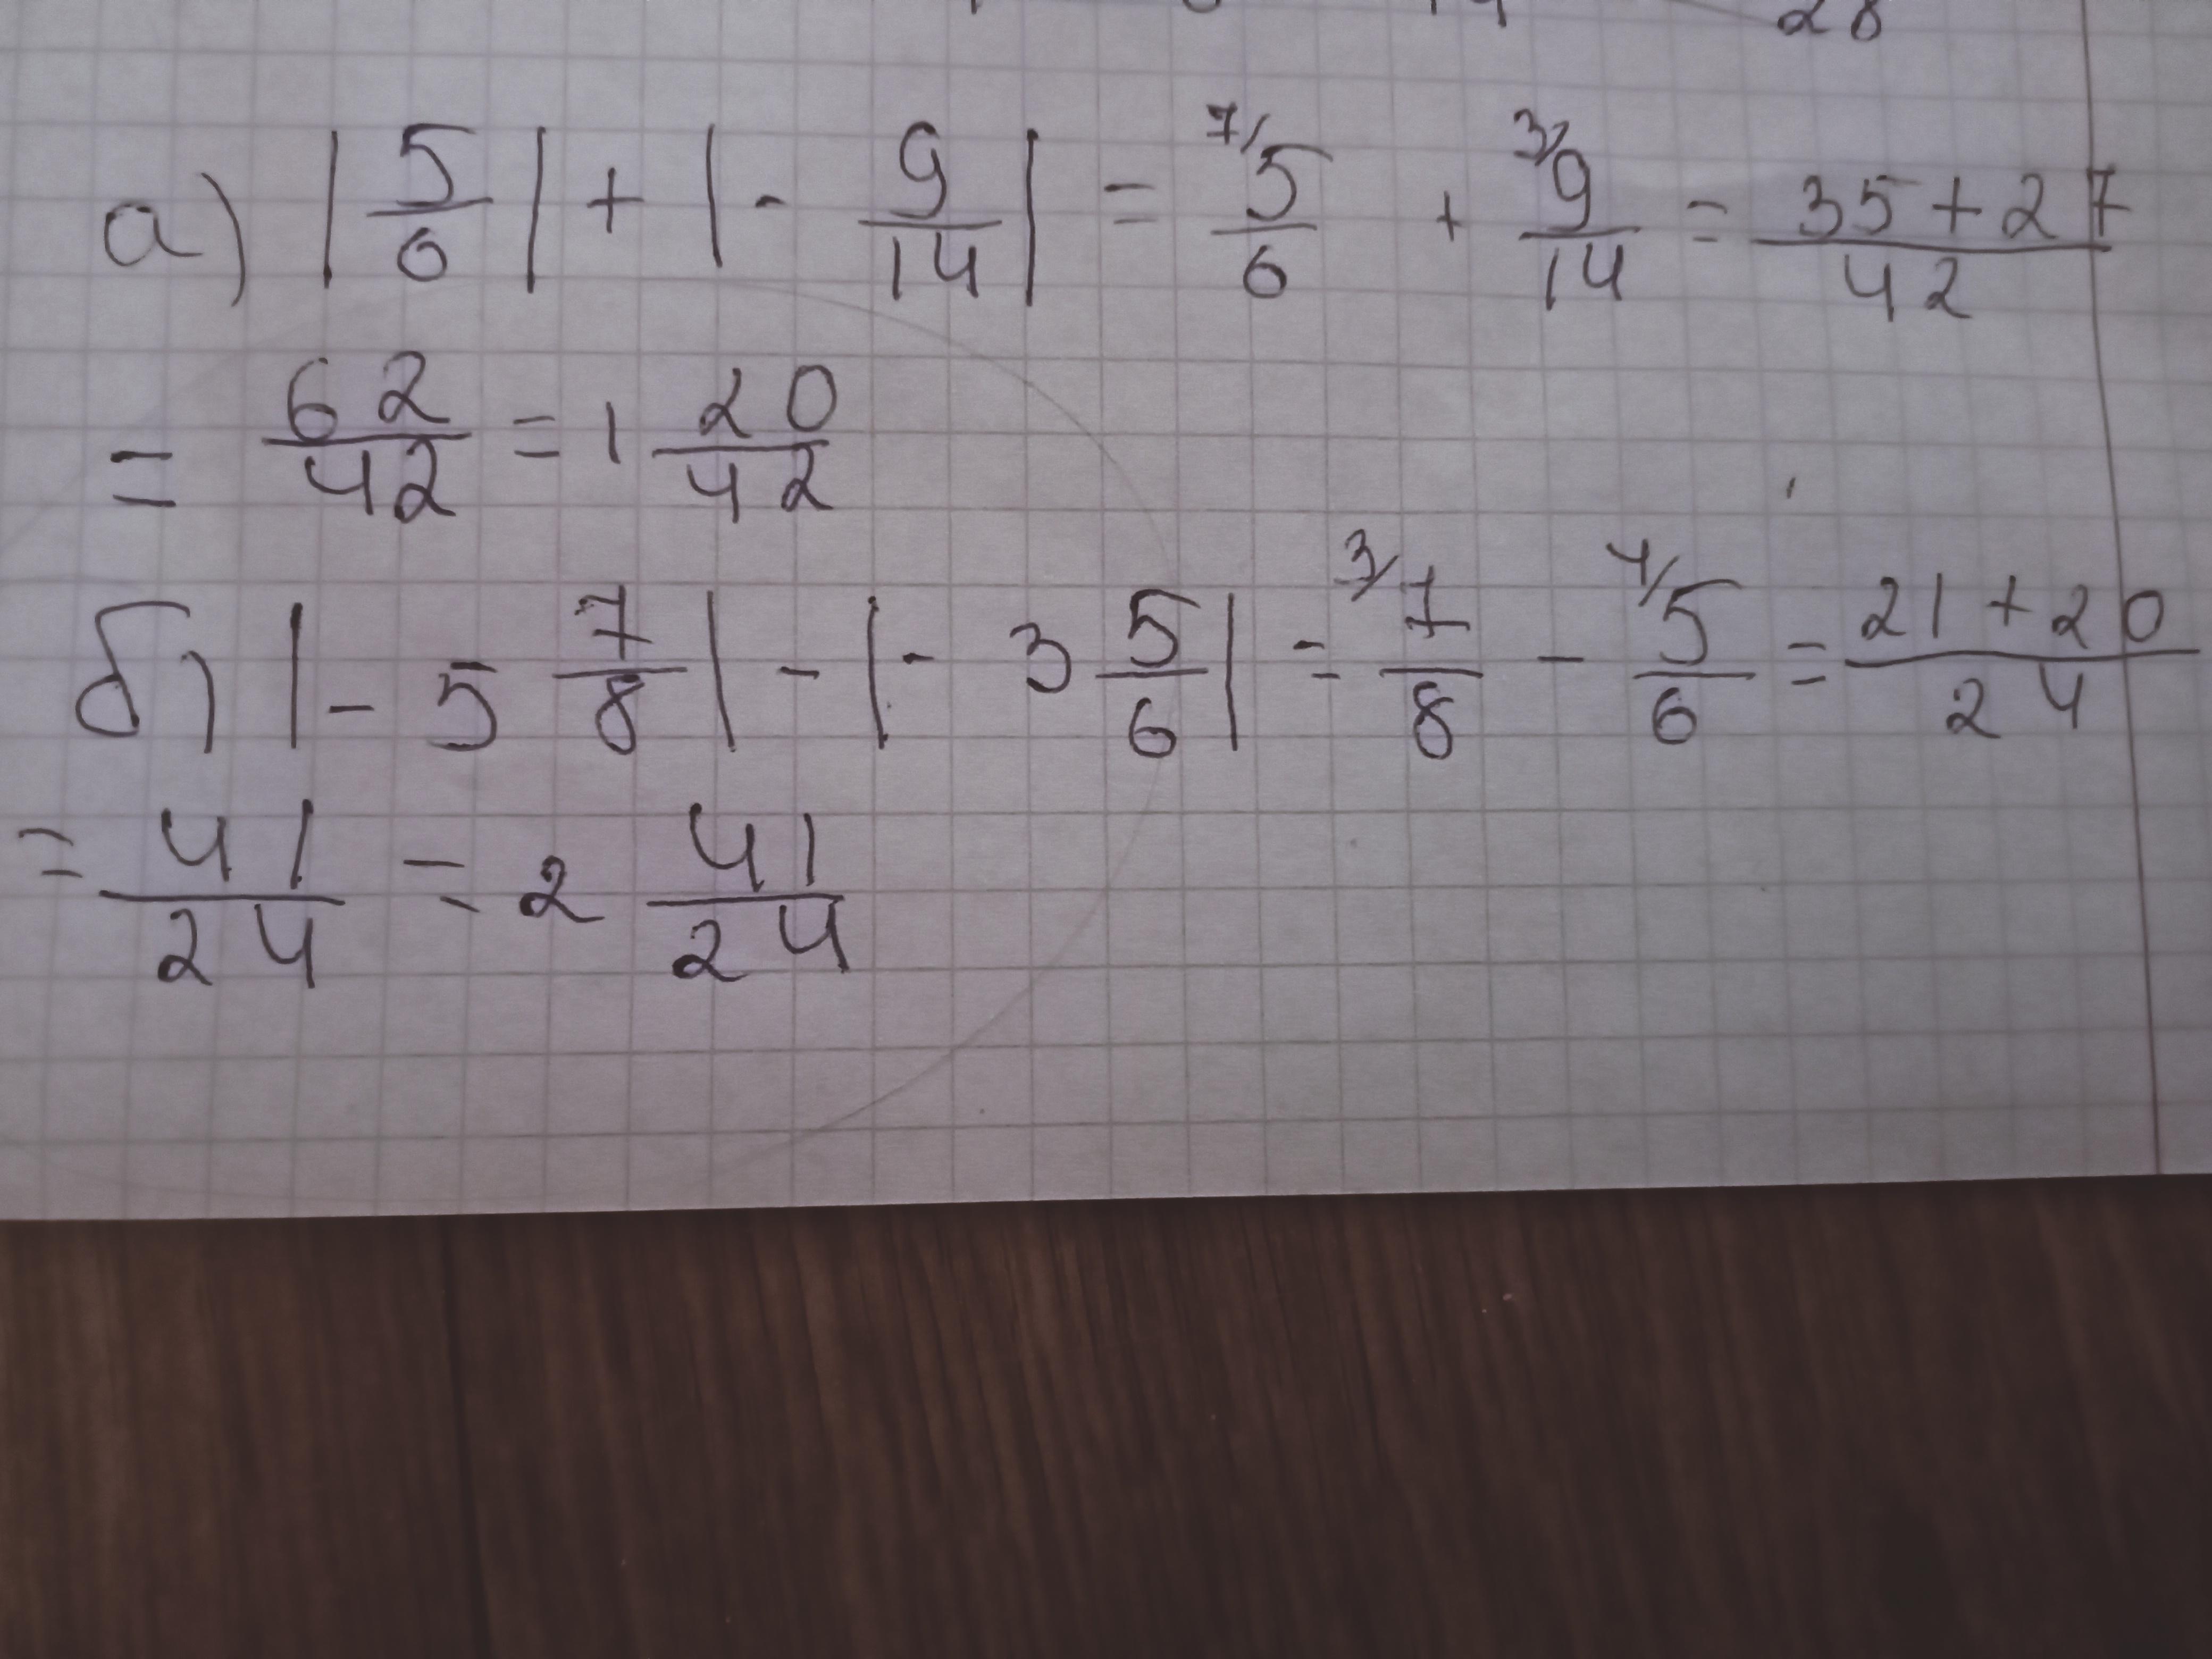 28
а) |5/6| + |- 9/14| = 7/ 5/6 + 3/ 9/14 = 35+27/42
= 62/42 = 1 20/42
б) |- 5 7/8| - |- 3 5/6| = 3/ 7/8 - 4/ 5/6 = 21+20/24
= 41/24 = 2 41/24